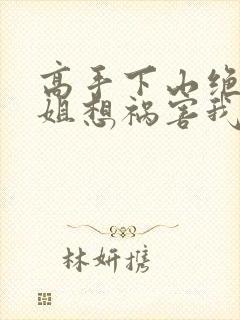 高手下山绝
姐想祸害我
林妍携